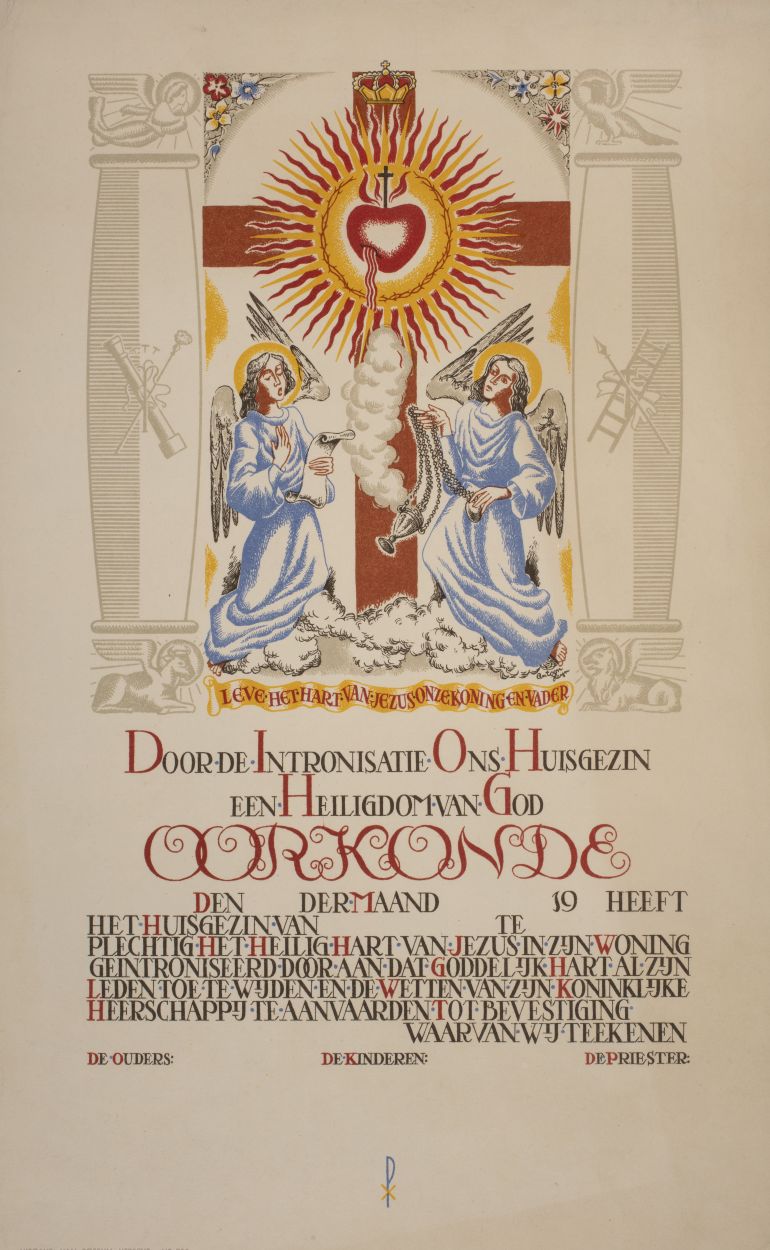 LEVE·HET·HART·VAN·JEZUS·ONZE·KONING·EN·VADER
DOOR·DE·INTRONISATIE·ONS·HUISGEZIN
EEN·HEILIGDOM·VAN·GOD
OORKONDE
DEN DER·MAAND 19 HEEFT
HET·HUISGEZIN·VAN TE
PLECHTIG·HET·HEILIG·HART·VAN·JEZUS·IN·ZIJN·WONING
GEINTRONISEERD·DOOR·AAN·DAT·GODDELIJK·HART·AL·ZIJN
LEDEN·TOE·TE·WIJDEN·EN·DE·WETTEN·VAN·ZIJN·KONINKLIJKE
HEERSCHAPPIJ·TE·AANVAARDEN·TOT·BEVESTIGING·
WAARVAN·WIJ·TEEKENEN
DE·OUDERS: DE·KINDEREN: DE·PRIESTER: